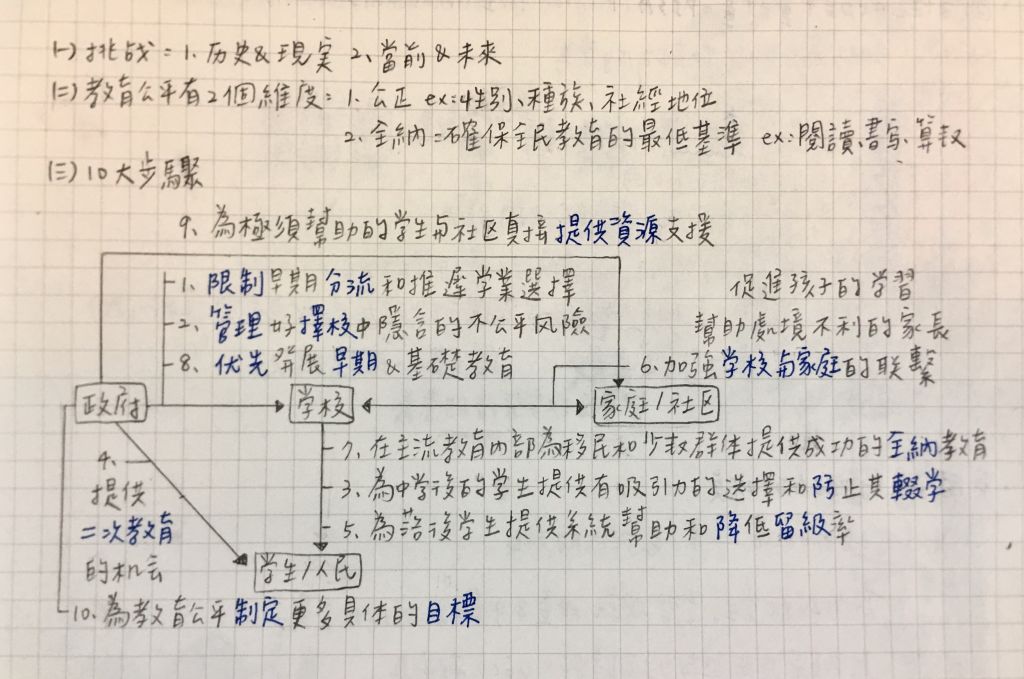 (一) 挑战：1、历史&現実 2、當前&未來
(二) 教育公平有2個維度：1、公正 ex:性别、種族、社經地位
2、全納：確保全民教育的最低基準 ex:閱讀、書写、算数
(三) 10大步驟
9、為極須幫助的学生与社区直接提供資源支援
1、限制早期分流和推遲学業選擇
2、管理好擇校中隱含的不公平风險
8、优先発展早期&基礎教育
促進孩子的学習
幫助處境不利的家長
6、加強学校与家庭的联繫
政府
学校
家庭/社区
7、在主流教育内部為移民和少数群体提供成功的全納教育
3、為中学後的学生提供有吸引力的选擇和防止其輟学
5、為落後学生提供系統幫助和降低留級率
4、
提供
二次教育
的机会
学生/人民
10、為教育公平制定更多具体的目標